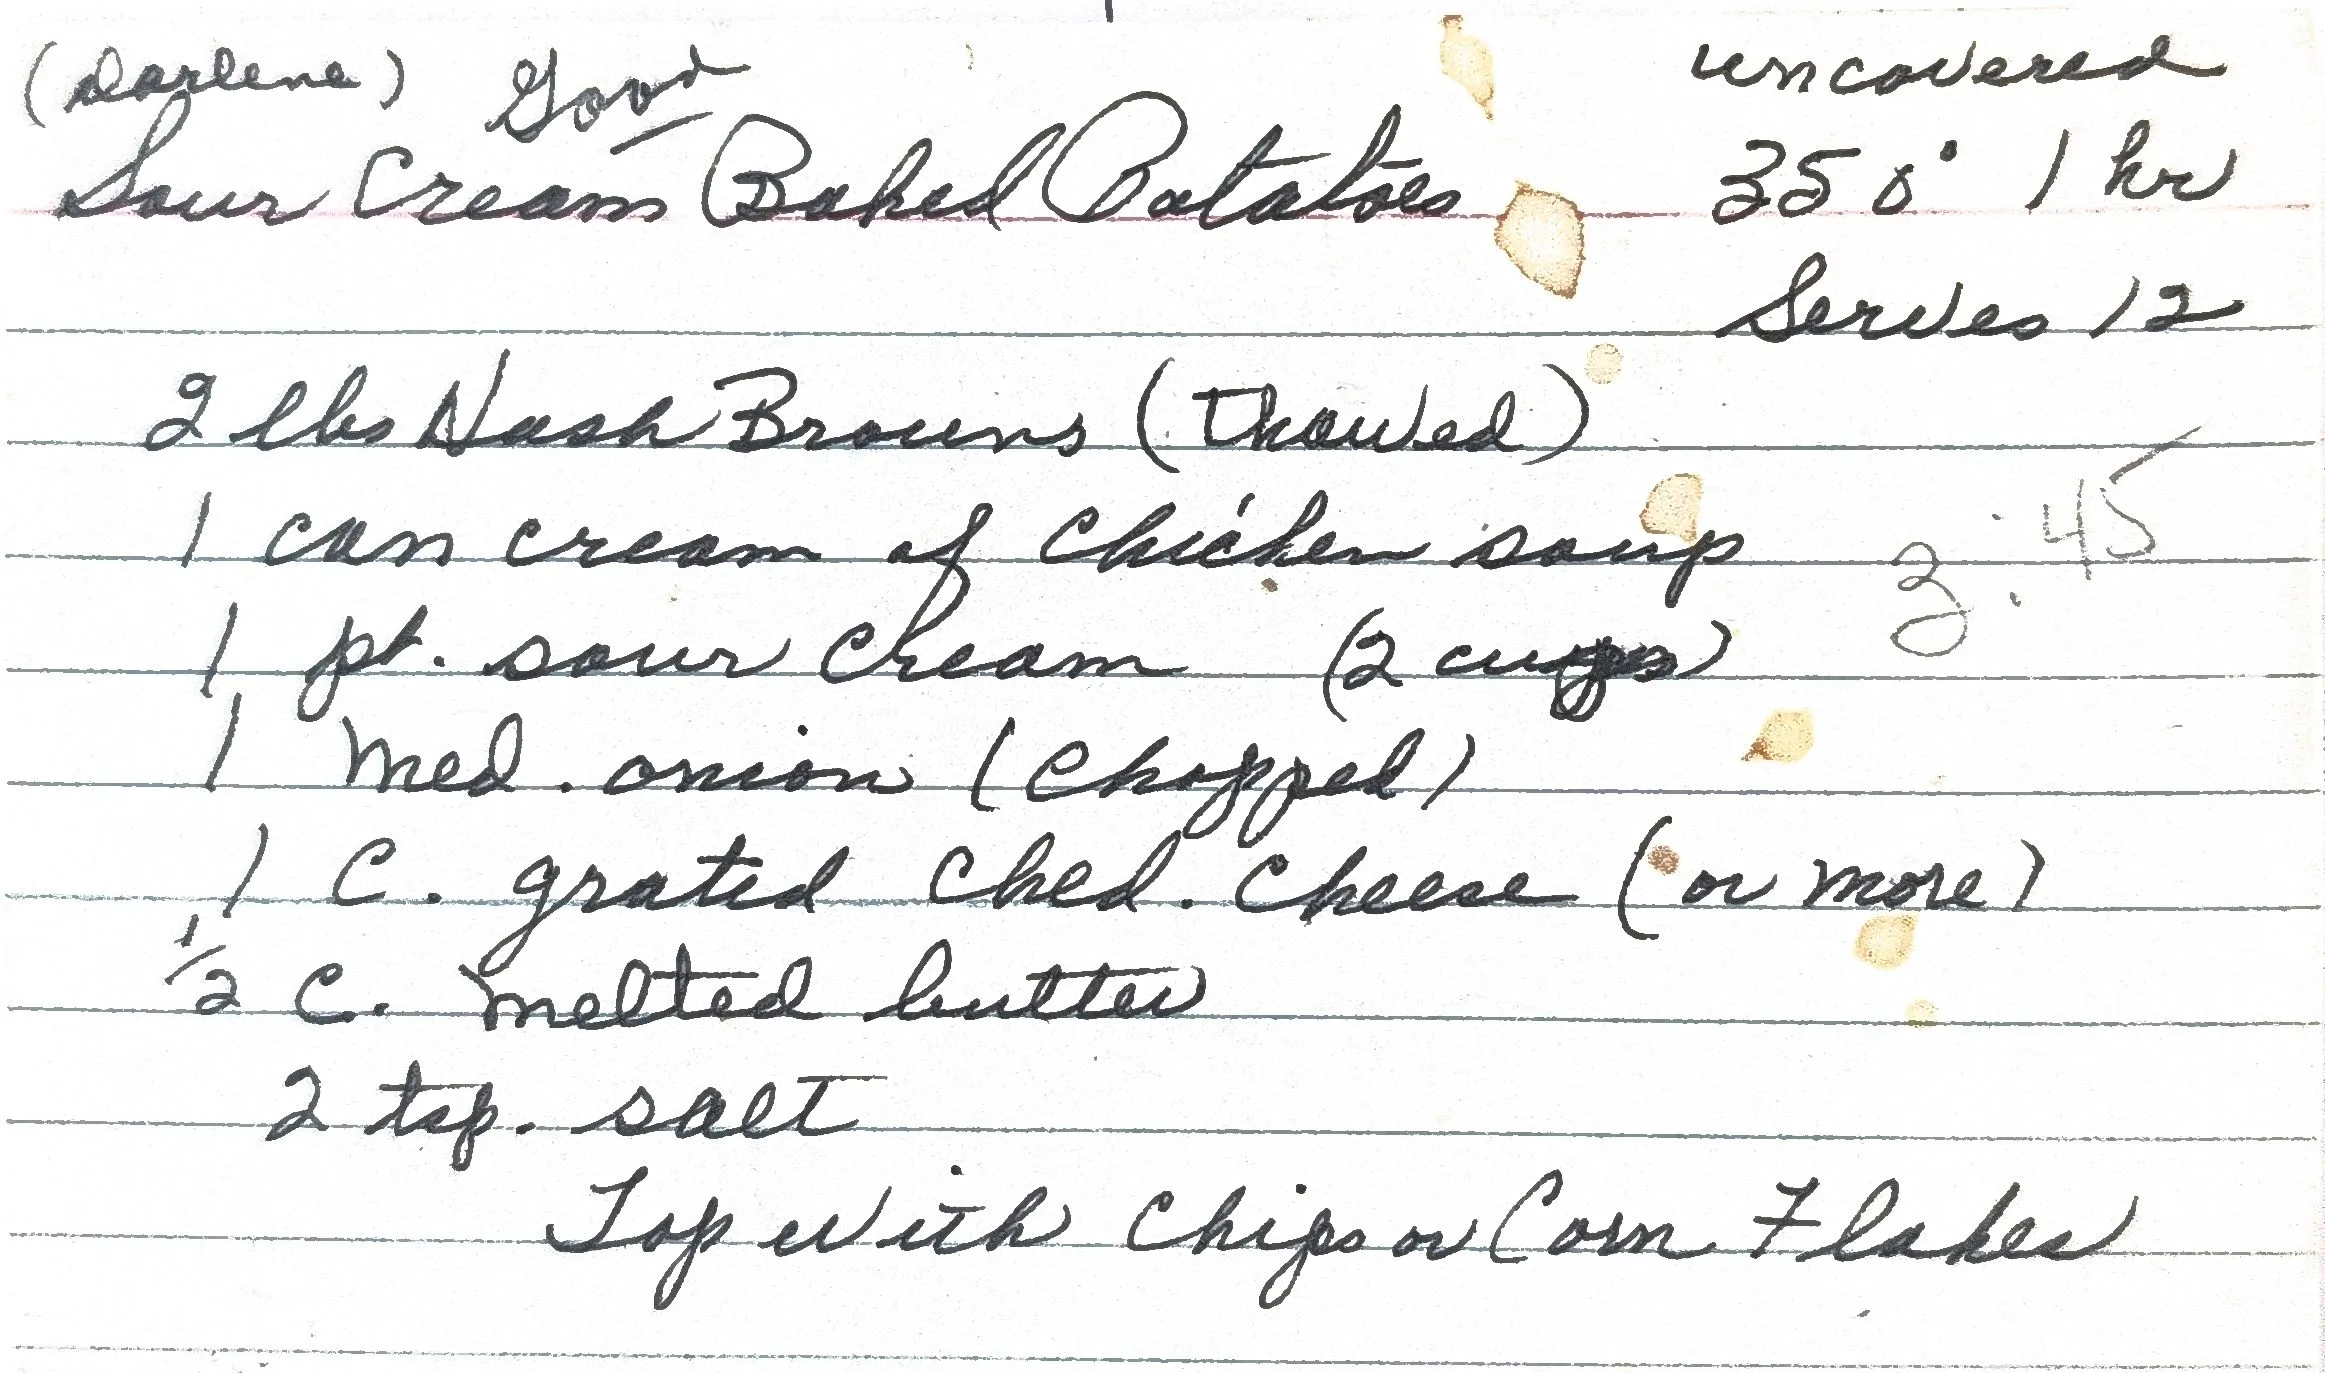 (Darlene) Good
uncovered
Sour Cream Baked Potatoes
350° 1 hr
Serves 12
2 lbs Hash Browns (Thawed)
1 can cream of chicken soup
3:45
1 pt. sour cream (2 cups)
1 med. onion (chopped)
1 C. grated Ched. cheese (or more)
1/2 C. melted butter
2 tsp. salt
Top with chips or Corn Flakes